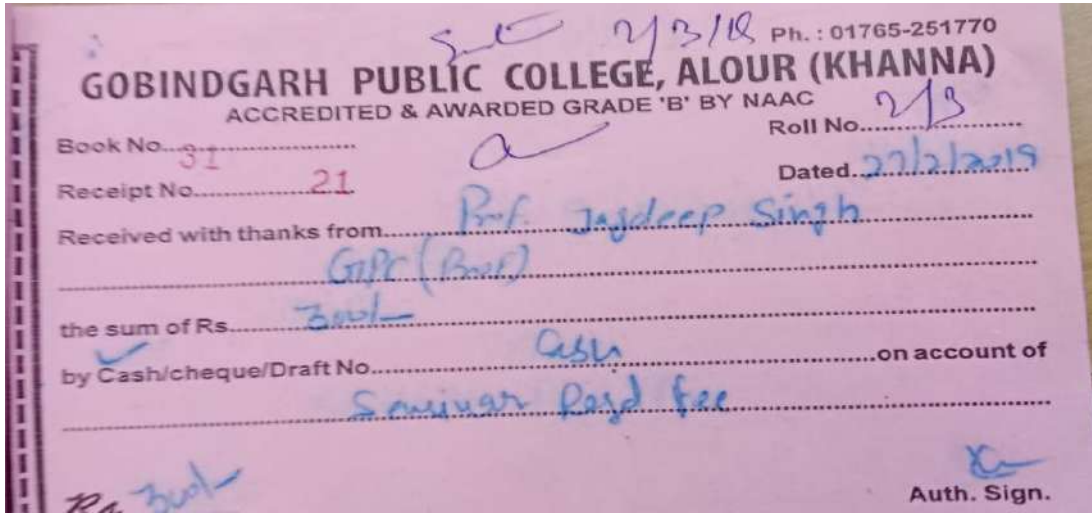 2/3/19 Ph. : 01765-251770
GOBINDGARH PUBLIC COLLEGE, ALOUR (KHANNA)
ACCREDITED & AWARDED GRADE 'B' BY NAAC
Book No. 31 Roll No. 2/3
Receipt No. 21 Dated. 27/2/2019
Received with thanks from Prof. Jagdeep Singh
GPC (Prof)
the sum of Rs. 300/-
by Cash/cheque/Draft No. Cash on account of
Seminar Regd fee
Rs. 300/-
Auth. Sign.